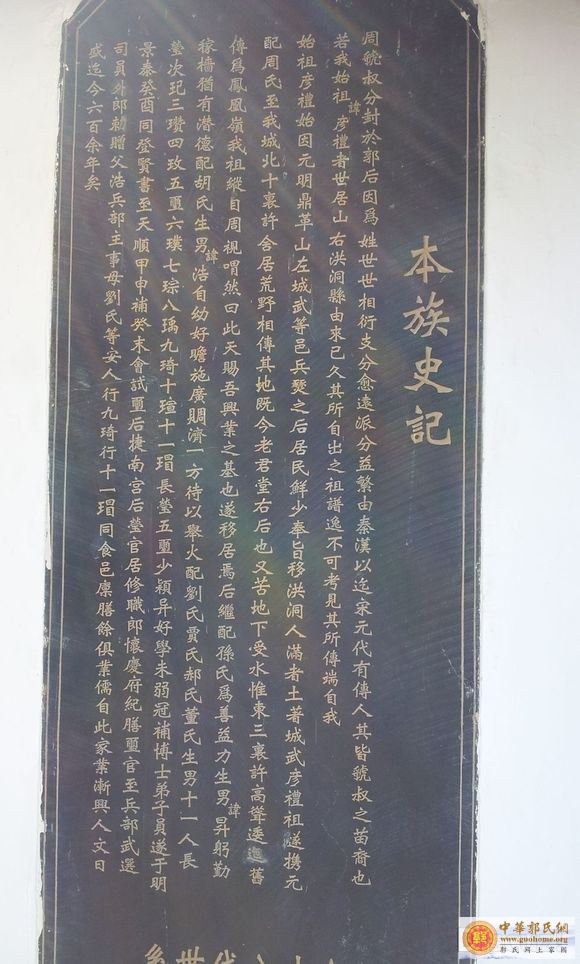 本族史記
周虢叔分封於郭后因爲姓世世相衍支分愈遠派分益繁由秦漢以迄宋元代有傳人其皆虢叔之苗裔也
若我始祖諱彦禮者世居山右洪洞縣由來已久其所自出之祖譜逸不可考見其所傳端自我
始祖彦禮始因元明鼎革山左城武等邑兵燹之后居民鮮少奉旨移洪洞人滿者土著城武彦禮祖遂携元
配周氏至我城北十裏許舍居荒野相傳其地既今老君堂右后也又苦地下受水惟東三裏許高聳逶迤舊
傳爲鳳凰嶺我祖縱自周視喟然曰此天賜吾興業之基也遂移居焉后繼配孫氏爲善益力生男諱昇躬勤
稼穡猶有潜德配胡氏生男諱浩自幼好贍施廣賙濟一方待以舉火配劉氏賈氏郝氏董氏生男十一人長
瑩次玘三瓚四玫五璽六璞七琮八瑀九琦十瑄十一瑁長瑩五璽少穎异好學未弱冠補博士弟子員遂于明
景泰癸酉同登賢書至天順甲申補癸未會試璽后捷南宫后瑩官居修職郎懷慶府紀膳璽官至兵部武選
司員外郎勅贈父浩兵部主事母劉氏等安人行九琦行十一瑁同食邑廪膳餘俱業儒自此家業漸興人文日
盛迄今六百余年矣
中華郭氏網
www.guohome.org
郭氏网上家園